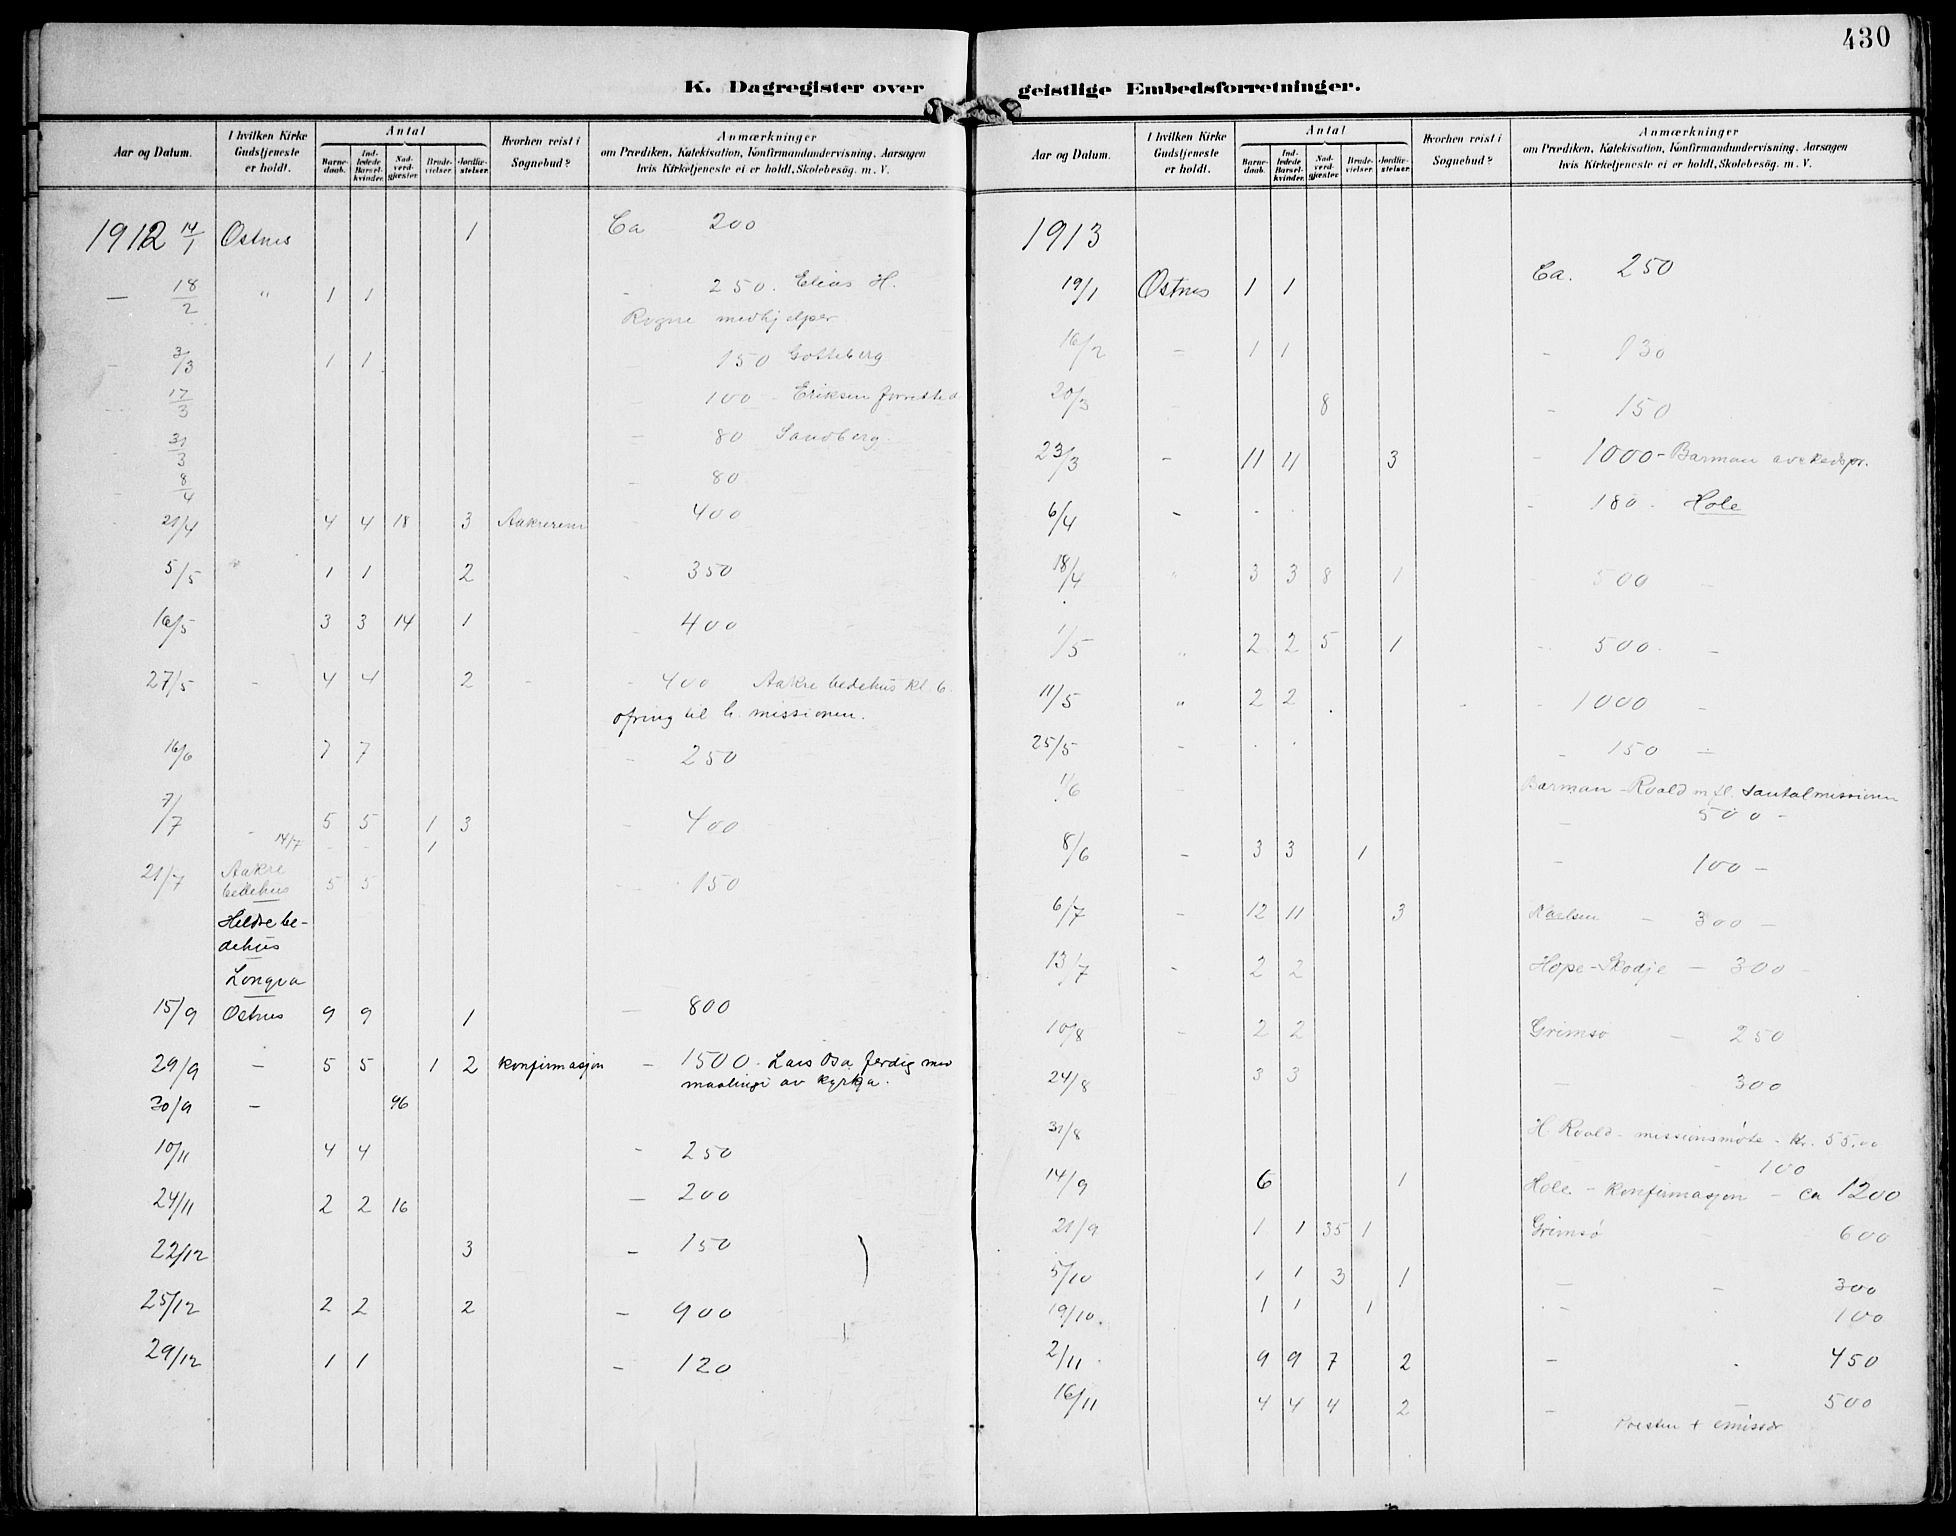 430
K. Dagregister over geistlige Embedsforretninger.
Aar og Datum. | I hvilken Kirke Gudstjeneste er holdt. | Antal | Barnedaab. | Indledede Barselkvinder. | Nadverdgjæster. | Brudevielser. | Jordfæstelser. | Hvorhen reist i Sognebud? | Anmærkninger om Prædiken, Katekisation, Konfirmandundervisning, Aarsagen hvis Kirketjeneste ei er holdt, Skolebesøg. m. V.
1912 14/1 Østnes 1 Ca 200
— 18/2 " 1 1 250. Elias H.
Rogne medhjelper
3/3 1 1 150 Gotteberg
17/3 100 - Eriksen
31/3 — 80 Sandberg
8/4 — 80
21/4 4 4 18 3 400
5/5 " 1 1 2 350
16/5 3 3 14 1 400
27/5 - 4 4 2 - 400 Aakre bedehus kl. 6.
ofring til h. missionen.
16/6 7 7 - 250
7/7 - 5 5 1 3 - 400
14/7 - - 1
21/7 Aakre bedehus 5 5 - 150
Heldre bedehus
Longva
15/9 Østnes 9 9 1 — 800
29/9 - 5 5 1 2 konfirmasjon - 1500 - Lars Osa ferdig med
maalingi av kyrkja.
30/9 - 96
10/11 4 4 - 250
24/11 2 2 16 — 200
22/12 3 - 150
25/12 2 2 2 - 900
29/12 1 1 - 120
Aar og Datum. | I hvilken Kirke Gudstjeneste er holdt. | Antal | Barnedaab. | Indledede Barselkvinder. | Nadverdgjæster. | Brudevielser. | Jordfæstelser. | Hvorhen reist i Sognebud? | Anmærkninger om Prædiken, Katekisation, Konfirmandundervisning, Aarsagen hvis Kirketjeneste ei er holdt, Skolebesøg. m. V.
1913
19/1 Østnes 1 1 Ca. 250
16/2 - 1 1 - 130
20/3 - 8 - 150
23/3 - 11 11 3 - 1000 - Barman avskedspr.
6/4 - . . - 180. Hole
18/4 " 3 3 8 1 500 -
1/5 " 2 2 5 1 - 500. -
11/5 " 2 2 . - 1000 -
25/5 - . . - 150 -
1/6 - Barman - Roald m fl. Santalmissionen
- 500 -
8/6 - 3 3 1 - 100 -
6/7 - 12 11 3 - 300 -
13/7 - 2 2 Hope - Skodje - 300 -
10/8 - 2 2 Grimsø - 250
24/8 3 3 300
31/8 H. Roald - missionsmøte - kr. 55.00
- 100
14/9 6 1 Hole. - konfirmasjon - ca 1200
21/9 1 1 35 1 Grimsø - 600
5/10 1 1 3 1 - - 300
19/10. 1 1 1 - - 100
2/11. 9 9 7 2 - - 450
16/11 4 4 4 2 - - 500
Presten + emissær